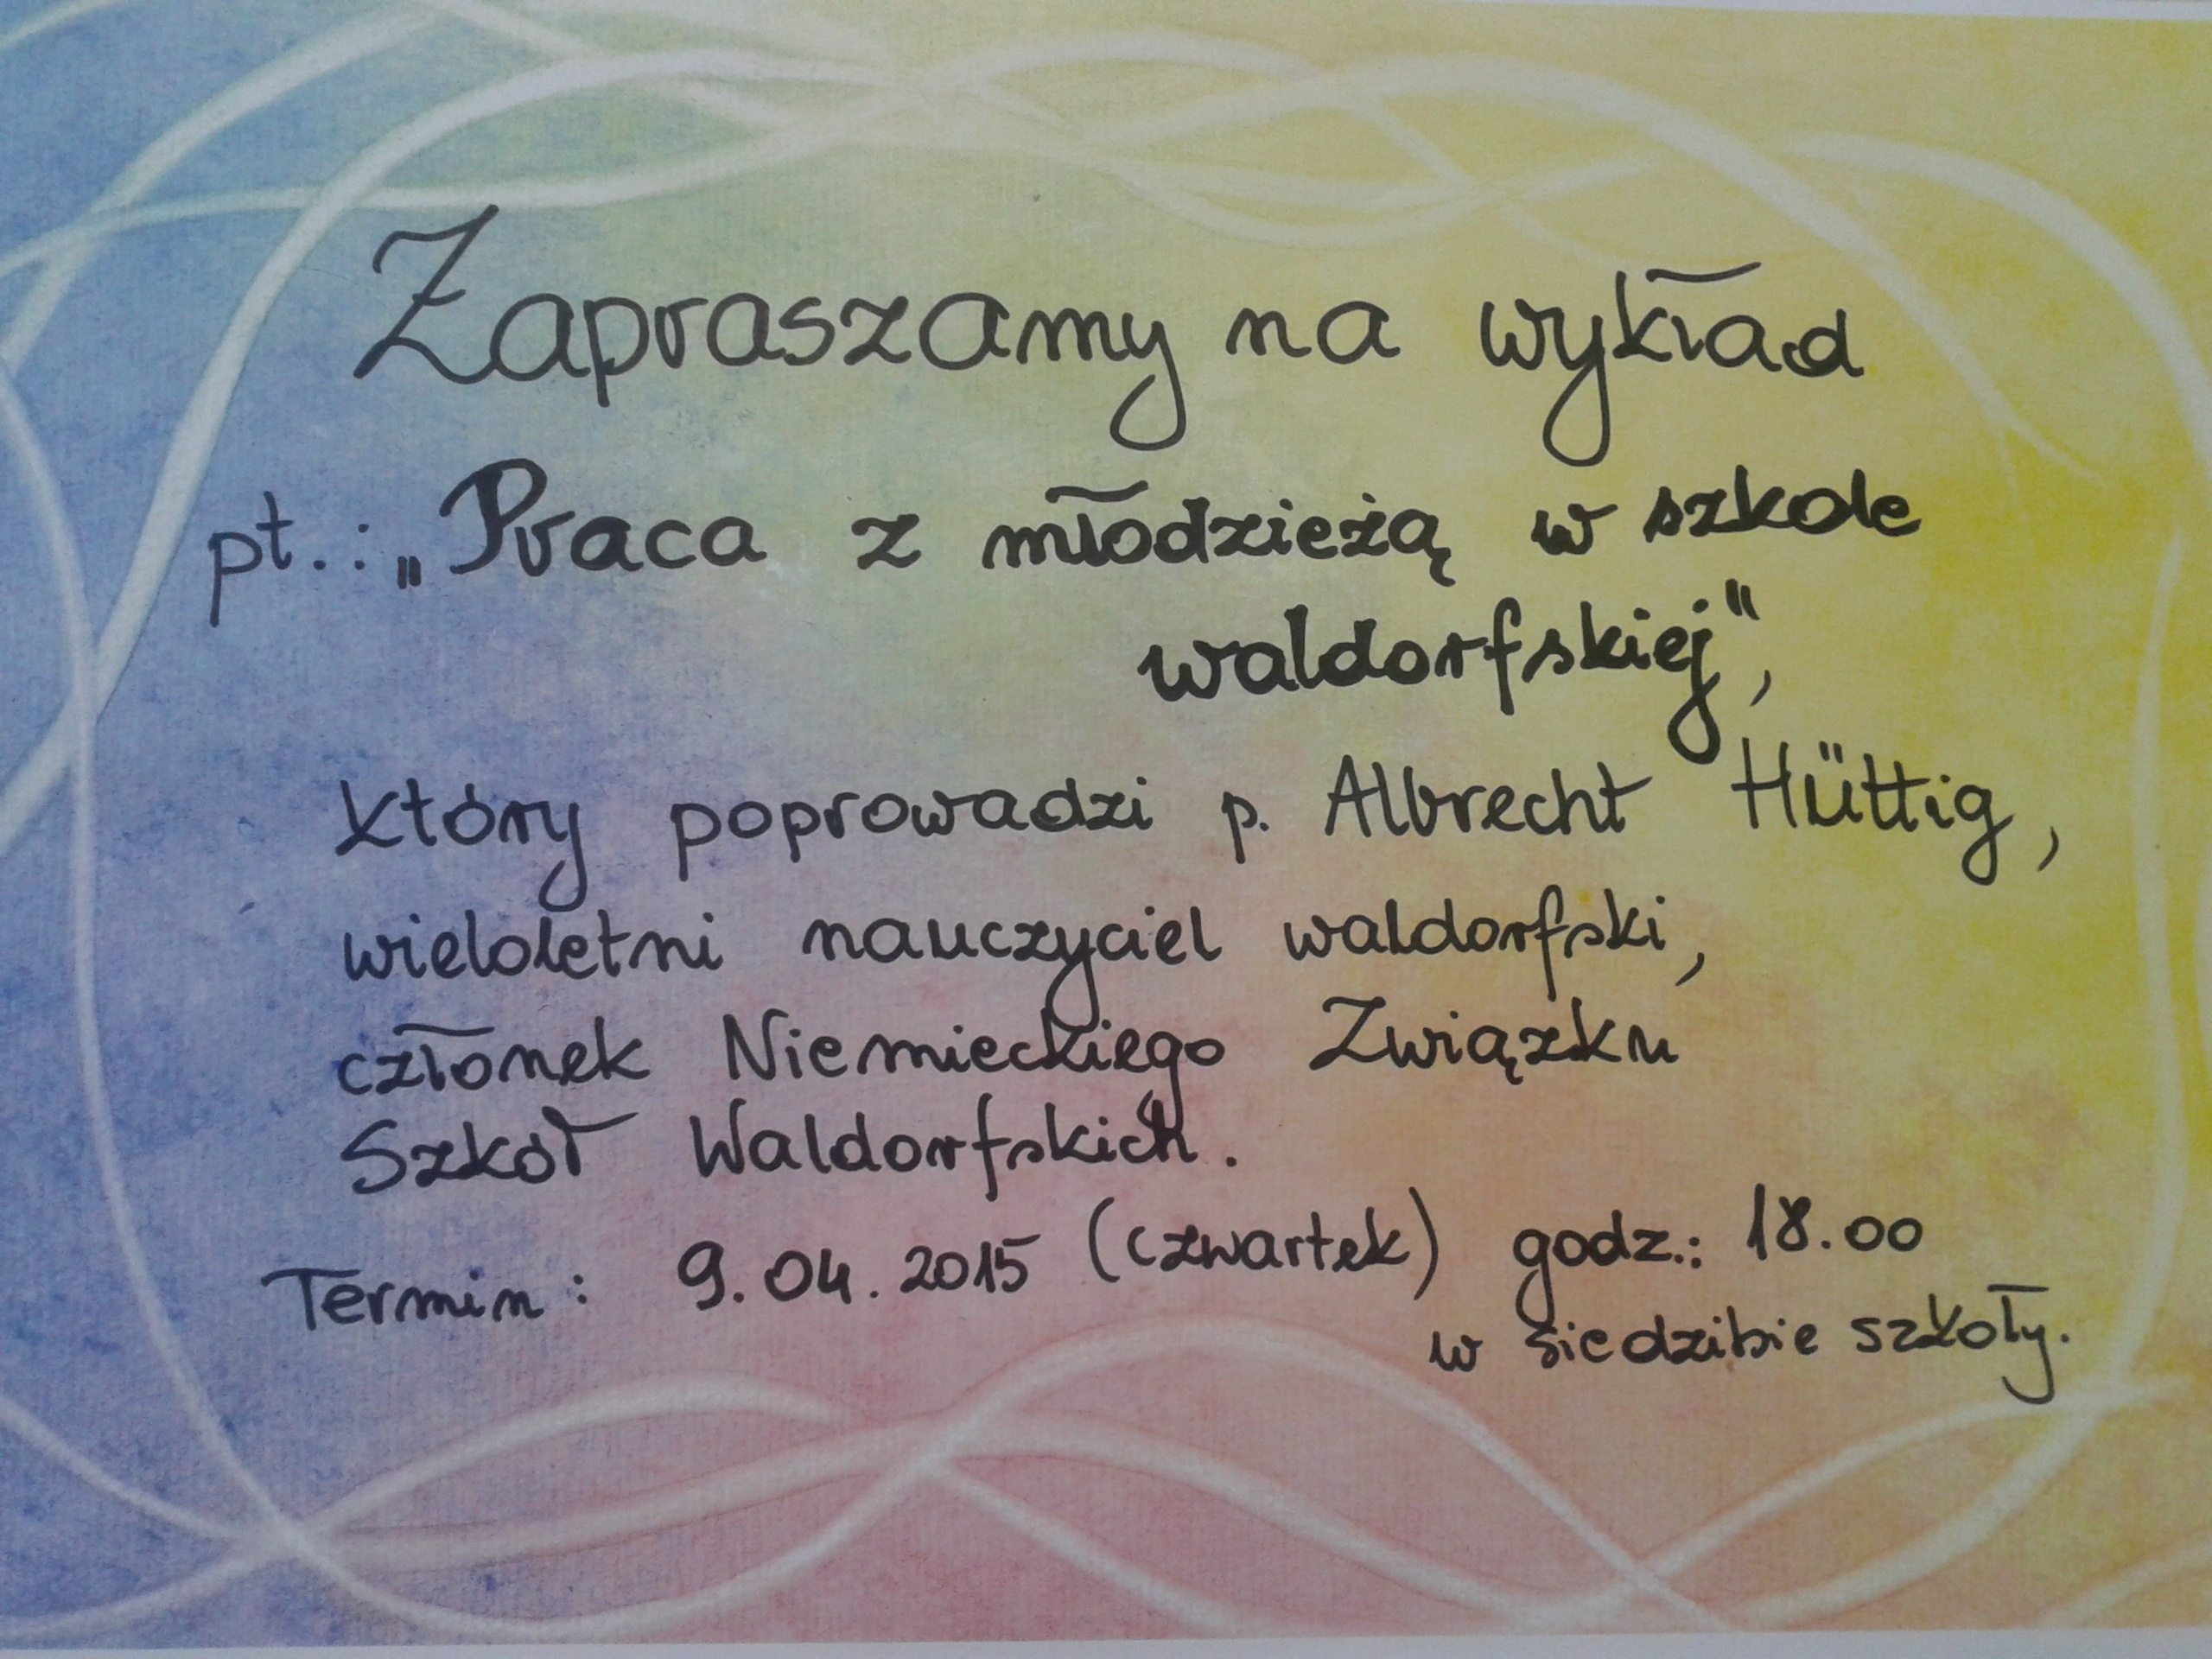 Zapraszamy na wykład
pt.: „Praca z młodzieżą w szkole
waldorfskiej",
który poprowadzi p. Albrecht Hüttig,
wieloletni nauczyciel waldorfski,
członek Niemieckiego Związku
Szkół Waldorfskich.
Termin: 9.04.2015 (czwartek) godz.: 18.00
w siedzibie szkoły.